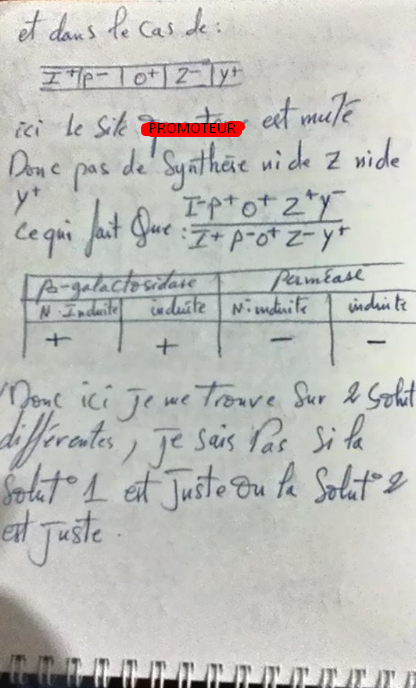 et dans le cas de :
I+ P- O+ Z- y+
ici le site PROMOTEUR est muté
Donc pas de Synthèse ni de Z ni de
y+
ce qui fait Que : I- P+ O+ Z+ y-
I+ P- O+ Z- y+
β-galactosidase Perméase
N.Induite induite N.induite induite
+ + - -
Donc ici je me trouve sur 2 Solut°
différentes, je sais Pas si la
Solut° 1 est juste ou la Solut° 2
est juste.